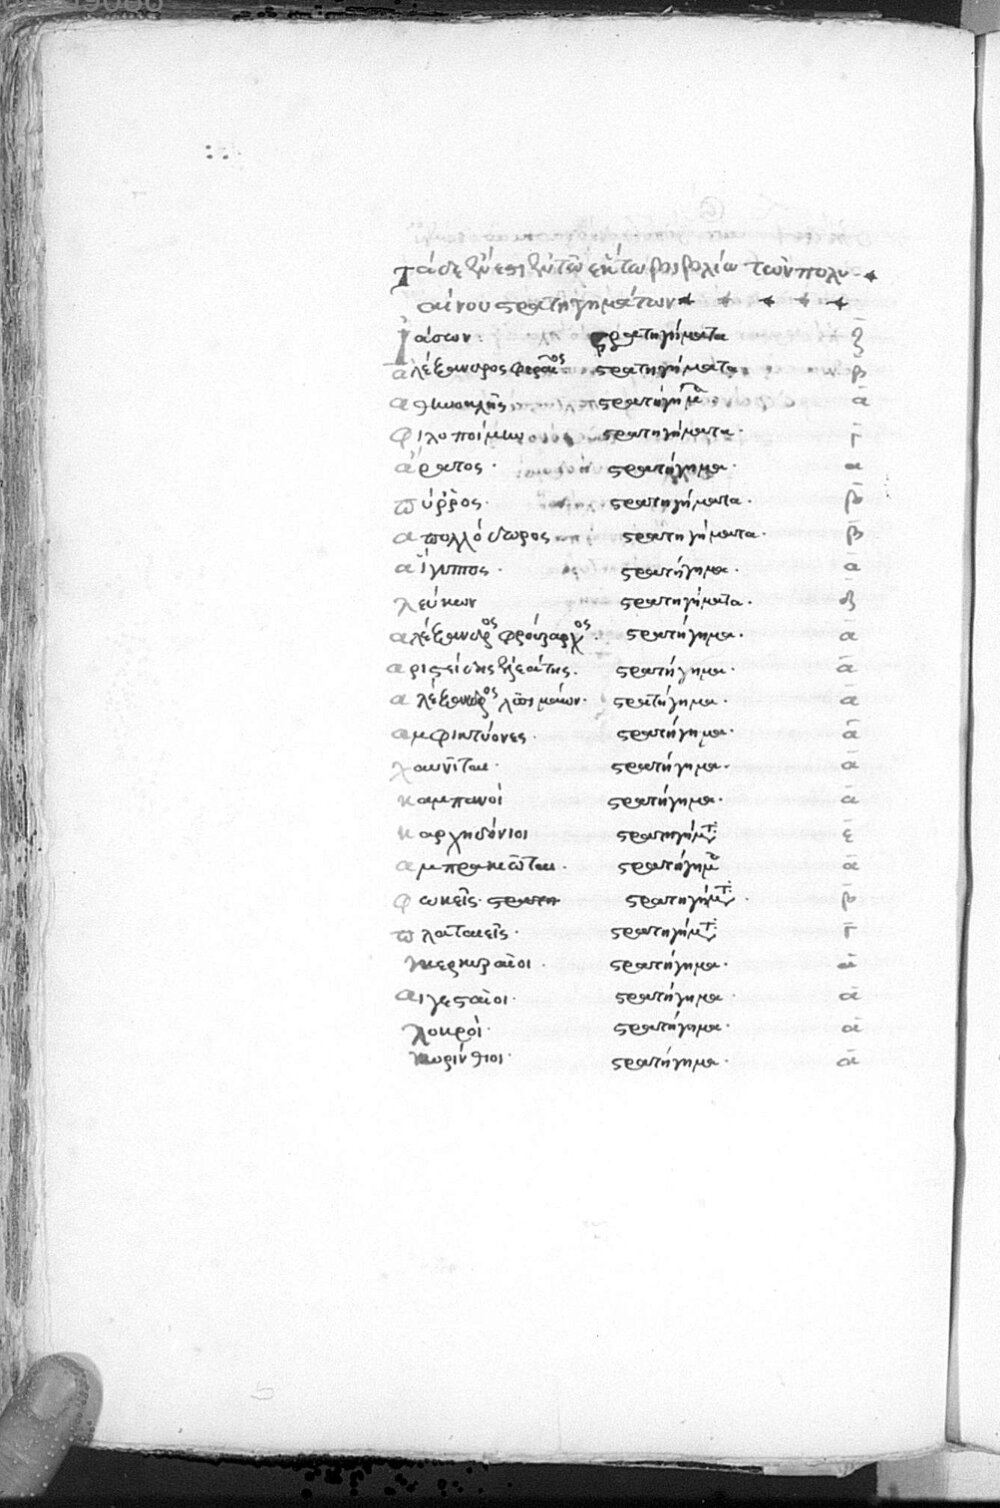 Τάδε ἔνεστιν ἐν τῶ ἕκτω βιβλίω τῶν πολυ
αίνου στρατηγημάτων
Ἰάσων. στρατηγήματα
ἀλέξανδρος φεραῖος στρατηγήματα β
ἀθηνοκλῆς στρατήγημα α
φιλοποίμην στρατηγήματα. γ
ἄρατος. στρατήγημα. α
πύρρος. στρατηγήματα. β
ἀπολλόδωρος στρατηγήματα. β
αἴγυπτος. στρατήγημα. α
λεύκων στρατηγήματα. δ
ἀλέξανδρος φρούραρχος. στρατήγημα. α
ἀριστείδης ἐλεάτης. στρατήγημα. α
ἀλέξανδρος στρατήγημα. α
ἀμφικτύονες. στρατήγημα. α
σαμνῖται. στρατήγημα. α
καμπανοί στρατήγημα. α
καρχηδόνιοι στρατηγήματ ε
ἀμπρακιῶται. στρατήγημα α
φωκεῖς. στρατηγήματ. β
πλαταιεῖς. στρατηγήματ γ
κερκυραῖοι. στρατήγημα. α
αἰγεσταῖοι. στρατήγημα. α
λοκροί. στρατήγημα. α
κορίνθιοι. στρατήγημα. α